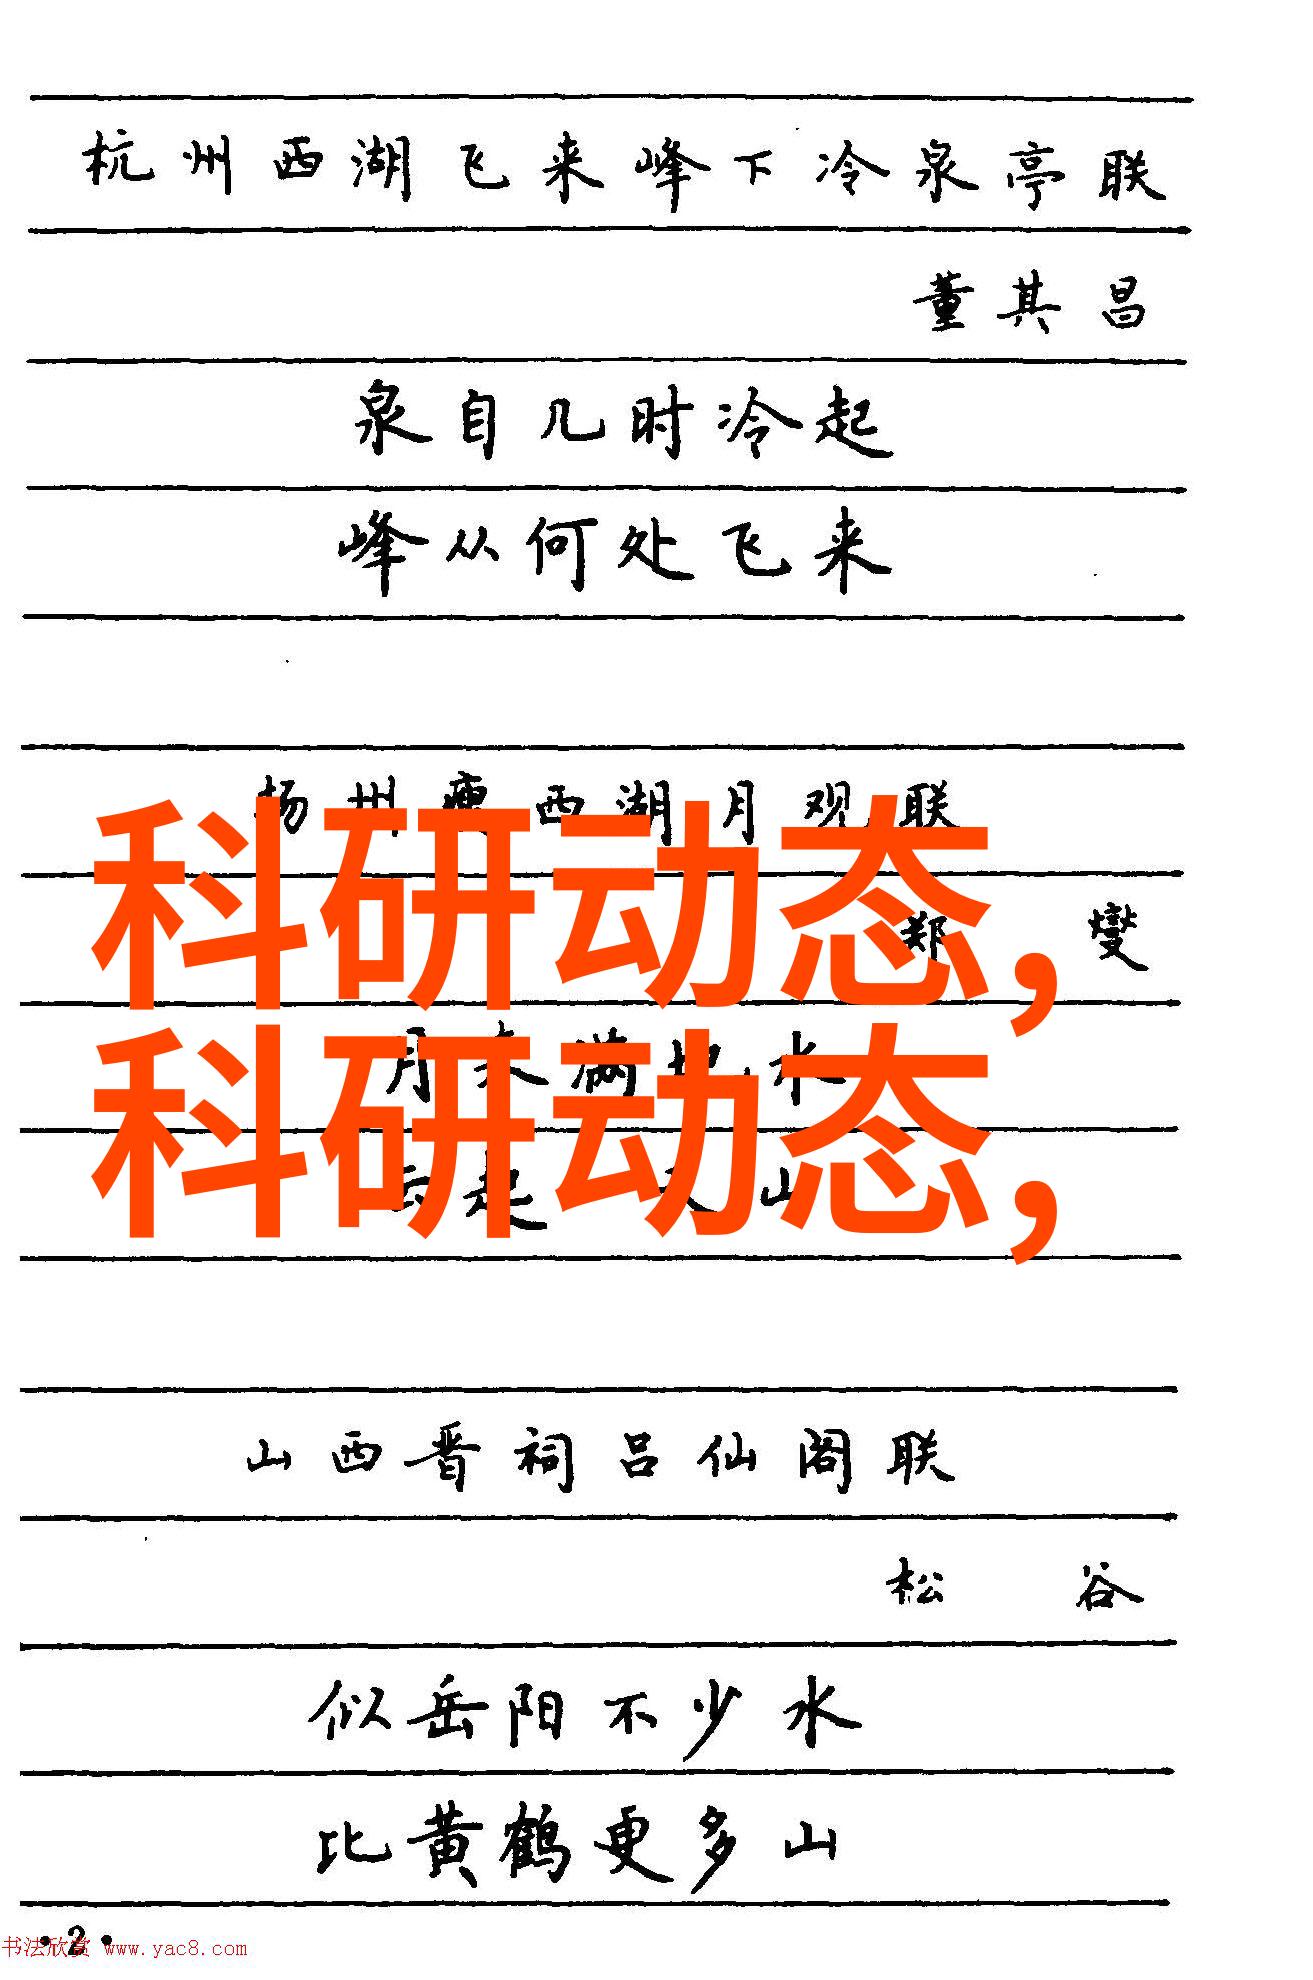 杭州西湖飞来峰下冷泉亭联
董其昌
泉自几时冷起
峰从何处飞来
扬州瘦西湖月观联
郑燮
月来满地水
云起一天山
科研动态,
科研动态,
山西晋祠吕仙阁联
松谷
似岳阳不少水
比黄鹤更多山
·2·
书法欣赏 www.yac8.com